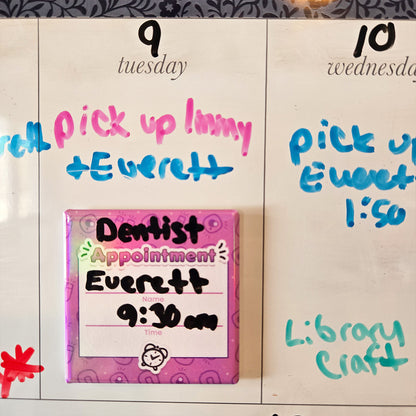 9
tuesday
pick up Immy
+Everett
Dentist
Appointment
Everett
Name
9:30 am
Time
10
wednesday
pick up
Everett
1:50
Library
craft